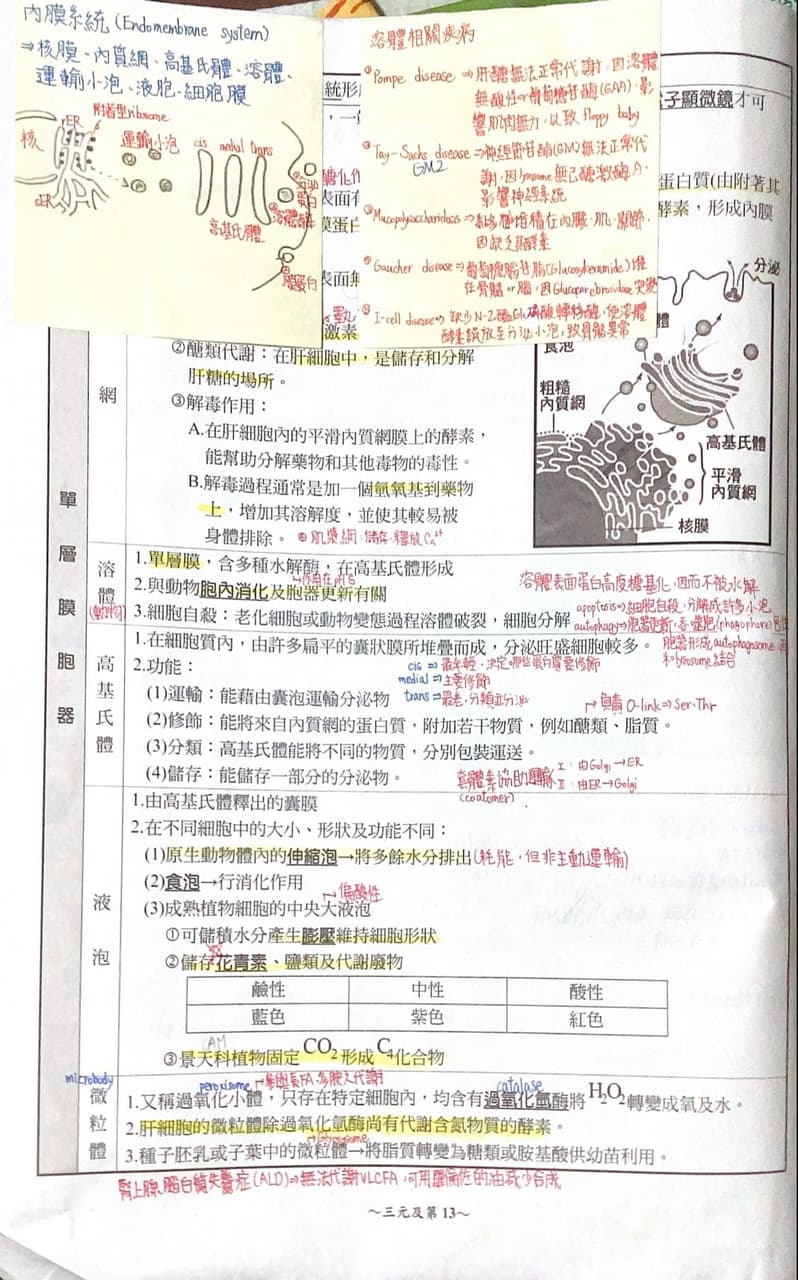 內膜系統 (Endomembrane system)
⇒核膜、內質網、高基氏體、溶體、
運輸小泡、液胞、細胞膜
附著型ribosome
rER
核
運輸小泡
cis medial trans
高基氏體
溶體相關疾病
①Pompe disease ⇒ 肝醣無法正常代謝,因溶體
無酸性α-葡萄糖苷酶(GAA),影
響肌肉無力,以致floppy baby
②Tay-Sachs disease⇒神經節苷酯(GM)無法正常代
GM2
謝,因lysosome無己醣激酶A,
影響神經系統
③Mucopolysaccharidosis⇒
④Gaucher disease⇒葡萄糖腦苷脂(Glucosylceramide)堆
在骨髓or腦,因
⑤I-cell disease⇒缺少N-
統形
子顯微鏡才可
蛋白質(由附著其
酵素,形成內膜
糖化作
表面有
膜蛋白
表面無
激素
分泌
食泡
粗糙
內質網
高基氏體
平滑
內質網
核膜
單層膜胞器
網
②醣類代謝:在肝細胞中,是儲存和分解
肝糖的場所。
③解毒作用:
A.在肝細胞內的平滑內質網膜上的酵素,
能幫助分解藥物和其他毒物的毒性。
B.解毒過程通常是加一個氫氧基到藥物
上,增加其溶解度,並使其較易被
身體排除。 ④肌漿網:儲存、釋放Ca²⁺
溶體
(動物)
1.單層膜,含多種水解酶,在高基氏體形成
2.與動物胞內消化及胞器更新有關
3.細胞自殺:老化細胞或動物變態過程溶體破裂,細胞分解
溶體表面蛋白高度糖基化,因而不被水解
apoptosis⇒細胞自殺,分解成許多小泡
autophagy⇒胞器更新,吞噬泡(phagophore)包住
胞器形成autophagosome,再
和lysosome結合
高基氏體
1.在細胞質內,由許多扁平的囊狀膜所堆疊而成,分泌旺盛細胞較多。
2.功能:
cis⇒最年輕,決定哪些蛋白需要修飾
medial⇒主要修飾
trans⇒最老,分類並分泌
(1)運輸:能藉由囊泡運輸分泌物
→負責O-link⇒Ser、Thr
(2)修飾:能將來自內質網的蛋白質,附加若干物質,例如醣類、脂質。
(3)分類:高基氏體能將不同的物質,分別包裝運送。
(4)儲存:能儲存一部分的分泌物。
I:由Golgi→ER
II:由ER→Golgi
(coatomer)
液泡
1.由高基氏體釋出的囊膜
2.在不同細胞中的大小、形狀及功能不同:
(1)原生動物體內的伸縮泡→將多餘水分排出(耗能,但非主動運輸)
(2)食泡→行消化作用
→偏酸性
(3)成熟植物細胞的中央大液泡
①可儲積水分產生膨壓維持細胞形狀
②儲存花青素、鹽類及代謝廢物
鹼性 中性 酸性
藍色 紫色 紅色
CAM
③景天科植物固定CO₂形成C₄化合物
microbody
微粒體
peroxisome
catalase
1.又稱過氧化小體,只存在特定細胞內,均含有過氧化氫酶將H₂O₂轉變成氧及水。
2.肝細胞的微粒體除過氧化氫酶尚有代謝含氮物質的酵素。
3.種子胚乳或子葉中的微粒體→將脂質轉變為糖類或胺基酸供幼苗利用。
腎上腺腦白質失養症(ALD)⇒無法代謝VLCFA,可用羅倫佐的油減少合成
～三元及第 13～